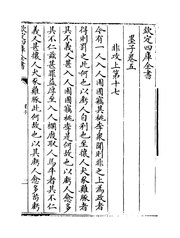 欽定四庫全書
墨子卷五
非攻上第十七
今有一人入人園圃竊其桃李衆聞則非之上為政者
得則罰之此何也以虧人自利也至攘人犬豕雞豚者
其不義又甚入人園圃竊桃李是何故也以虧人愈多
其不仁茲甚罪益厚至入人欄廐取人馬牛者其不仁
義又甚攘人犬豕雞豚此何故也以其虧人愈多苟虧
欽定四庫全書